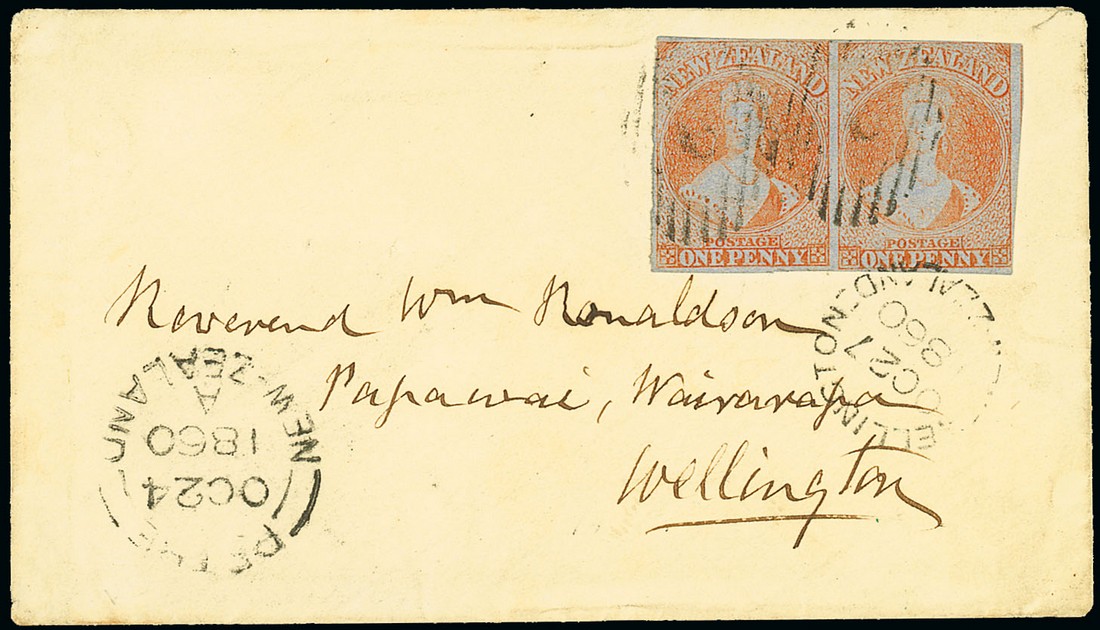 NEW ZEALAND NEW ZEALAND
POSTAGE POSTAGE
ONE PENNY ONE PENNY
Reverend Wm Ronaldson
Papawai, Wairarapa
Wellington
NEW-ZEALAND
A
1860
OC 24
OC 27